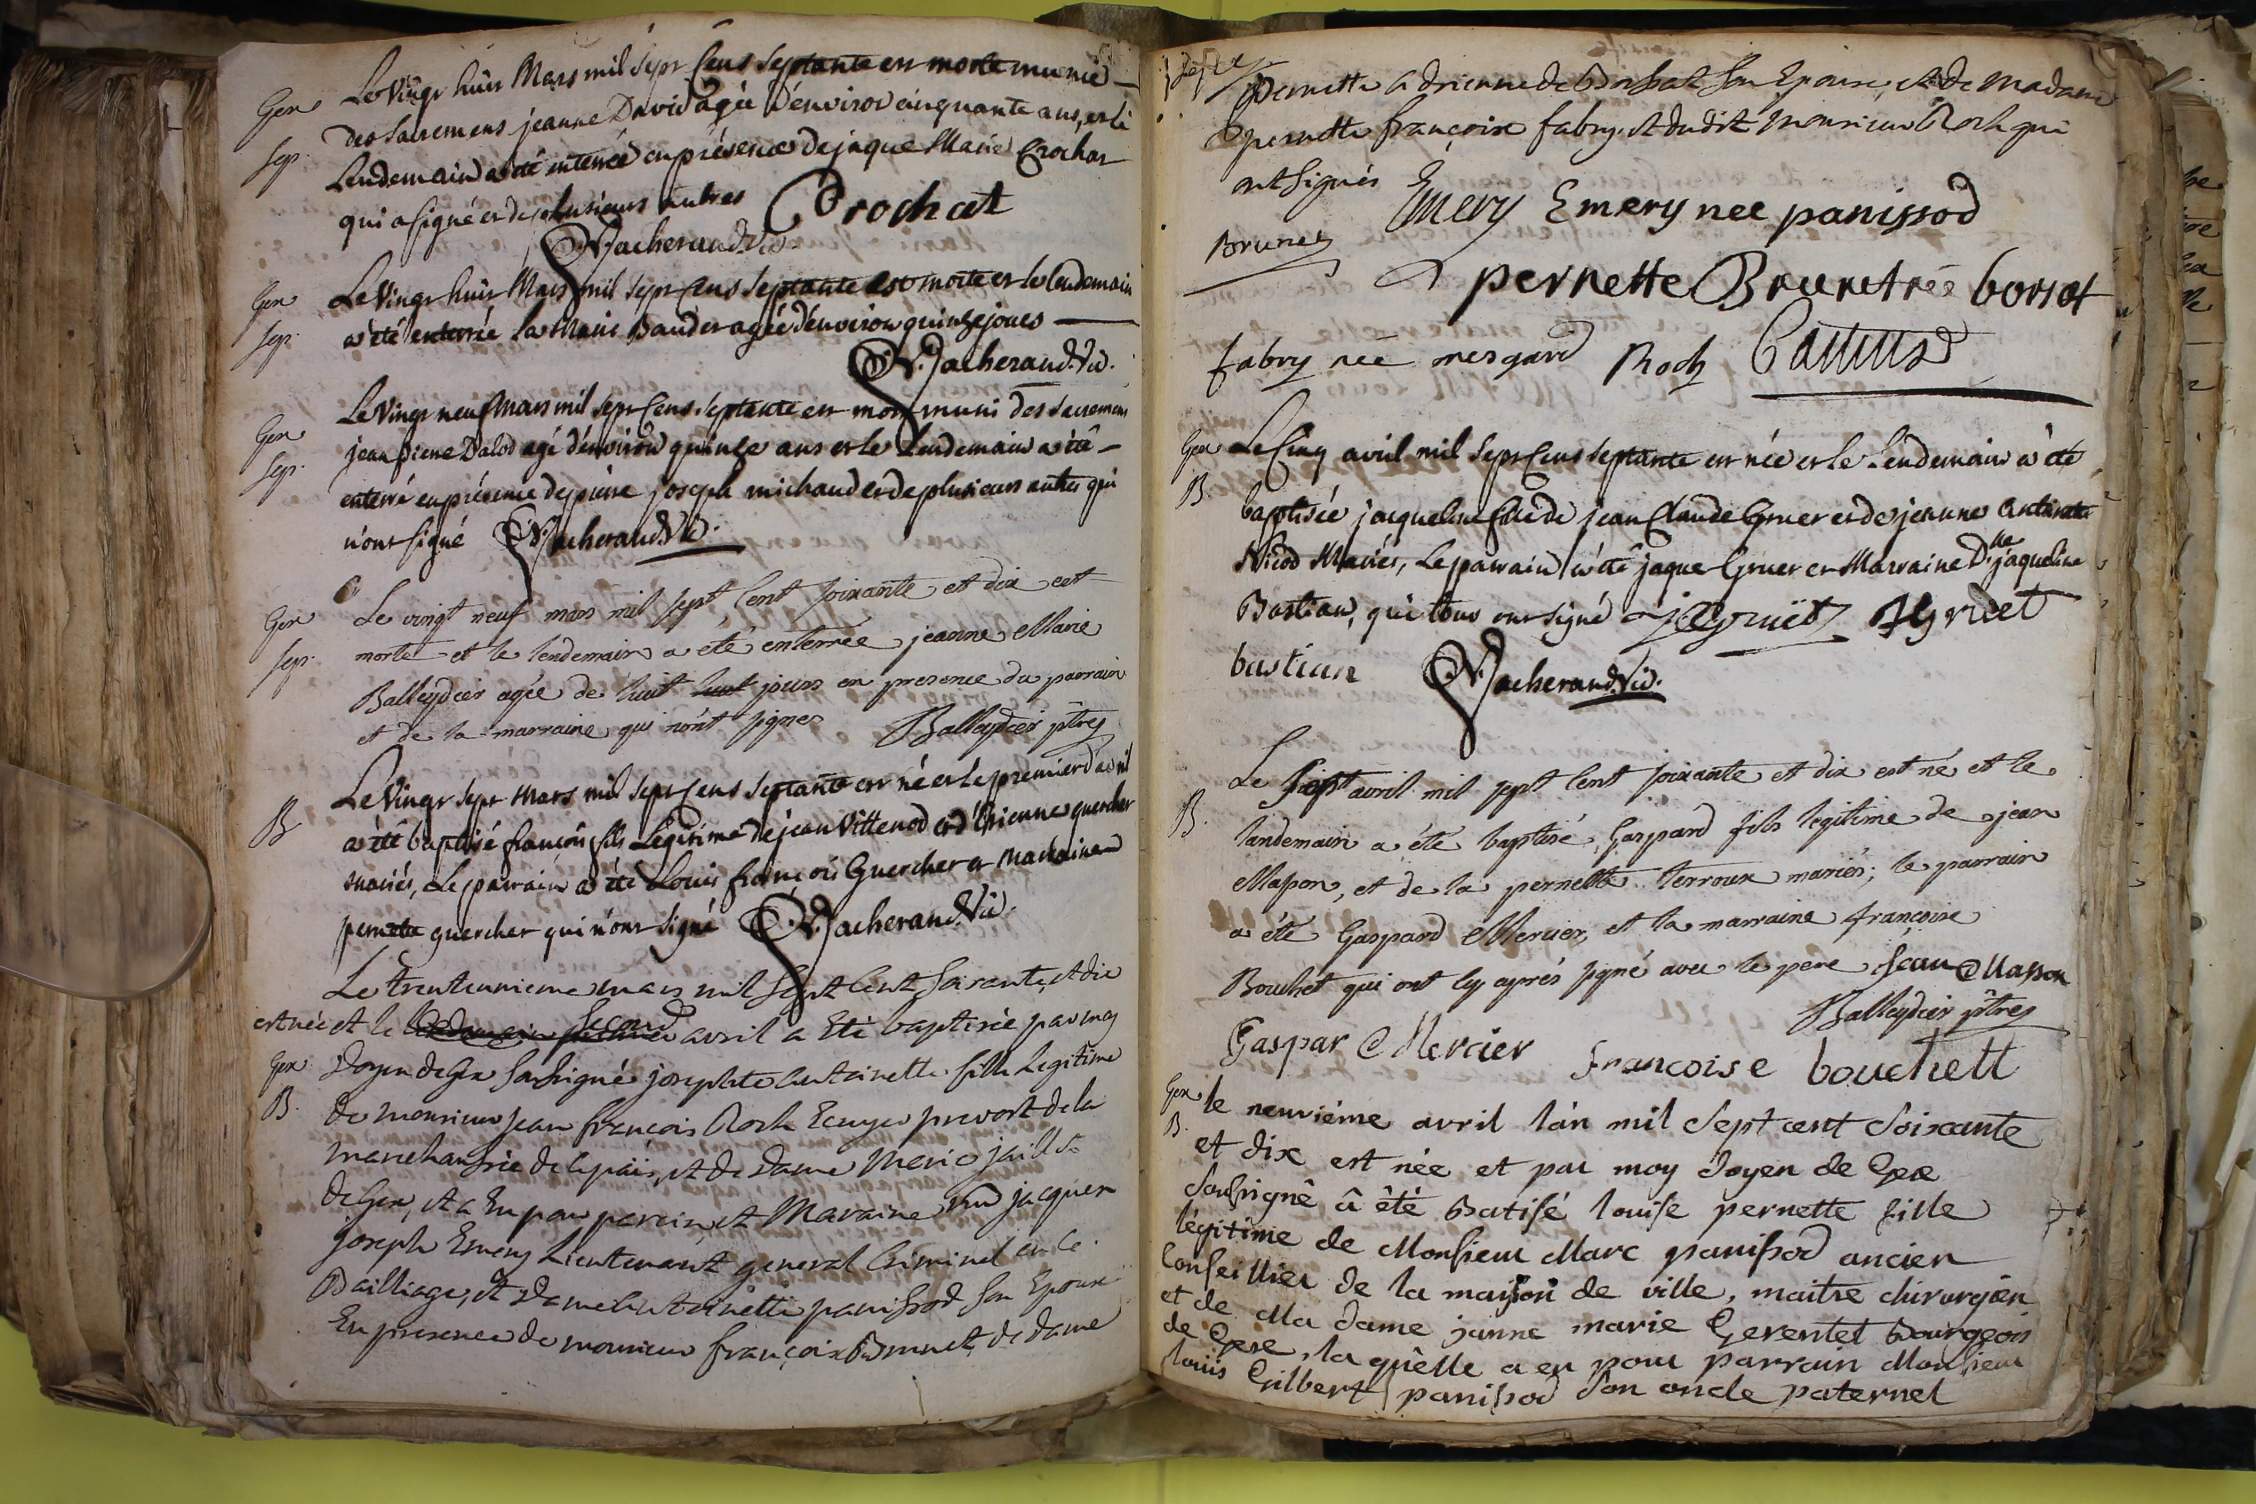 Gex Le Vingt huit Mars mil sept Cens septante est morte munie
Sep. des sacremens jeanne David agée d'environ cinquante ans, et le
Lendemain a été enterrée en présence de jaque Marie Crochat
qui a signé et de plusieurs autres Crochat
N. Vacherand. Vic.
Gex Le Vingt huit Mars mil sept Cens septante est morte et le lendemain
Sep. a été enterrée la Marie Baudet agée d'environ quinze jours
N. Vacherand. Vic.
Gex Le Vingt neuf Mars mil sept Cens septante est mort muni des sacremens
Sep. jean Pierre Dalod agé d'environ quinze ans et le Lendemain a été
enterré en présence de pierre joseph michaud et de plusieurs autres qui
n'ont signé N. Vacherand. Vic.
Gex Le vingt neuf mars mil sept Cent soixante et dix est
Sep. morte et le lendemain a eté enterrée jeanne Marie
Balleydier agée de huit huit jours en presence du parrain
et de la marraine qui n'ont signes Balleydier ptre
B Le Vingt sept Mars mil sept Cens septante est né et le premier d'avril
a été baptisé françois fils Légitime de jean Vittenod et d'Etienne quercher
mariés, Le parrain a été Louis françois Guercher et Marraine
pernete guercher qui n'ont signé N. Vacherand. Vic.
Le trenteunieme mars mil sept Cent soixante, et dix
est née et le second avril a Eté baptisée par moy
Gex Doyen de Gex sousigné josephte antoinette fille Legitime
B. de monsieur jean françois Roch Ecuyer prevost de la
marechaussée de ce païs, et de dame Marie jaillet
de Gex, et a Eu pour parein, et Maraine jacques
joseph Emery Lieutenant general Criminel en ce
Bailliage, et Dame antoinette panissod son Epouse
En presence de monsieur françois Brunet, de dame
pernette adrienne de Borssat son Epouse, et de madame
pernette françoise fabry, et dudit monsieur Roch qui
ont signés Emery Emery nee panissod
Brunet
pernette Brunet née borsat
fabry née mergard Roch Camus
Gex Le Cinq avril mil sept Cens septante est née et le Lendemain a été
B. baptisée jacqueline fille de jean Claude Gruet et de jeanne antoinette
Nicod Mariés, Le parrain a été jaque Gruet et Marraine Dlle jaqueline
Bastian, qui tous ont signé j C gruet J gruet
bastian N. Vacherand. Vic.
Le sept avril mil sept Cent soixante et dix est né et le
B. landemain a été baptisé, Gaspard fils legitime de jean
Masson, et de la pernette terroux mariés; le parrain
a été Gaspard Mercier, et la marraine françoise
Bouchet qui ont cy aprés signé avec le pere jean Masson
Balleydier ptre
Gaspar Mercier francoise bouchett
Gex le neuviéme avril l'án mil sept cent soixante
B. et dix est née et par moy doyen de Gex
sousigné â êté Batisé louise pernette fille
légitime de Monsieur Marc panissod ancien
Conseillier de la maison de ville, maitre chirurgien
et de Ma dame janne marie Gerentet Bourgeois
de Gex, la quêlle a eu pour parrain Monsieur
louis Gilbert panissod son oncle paternel